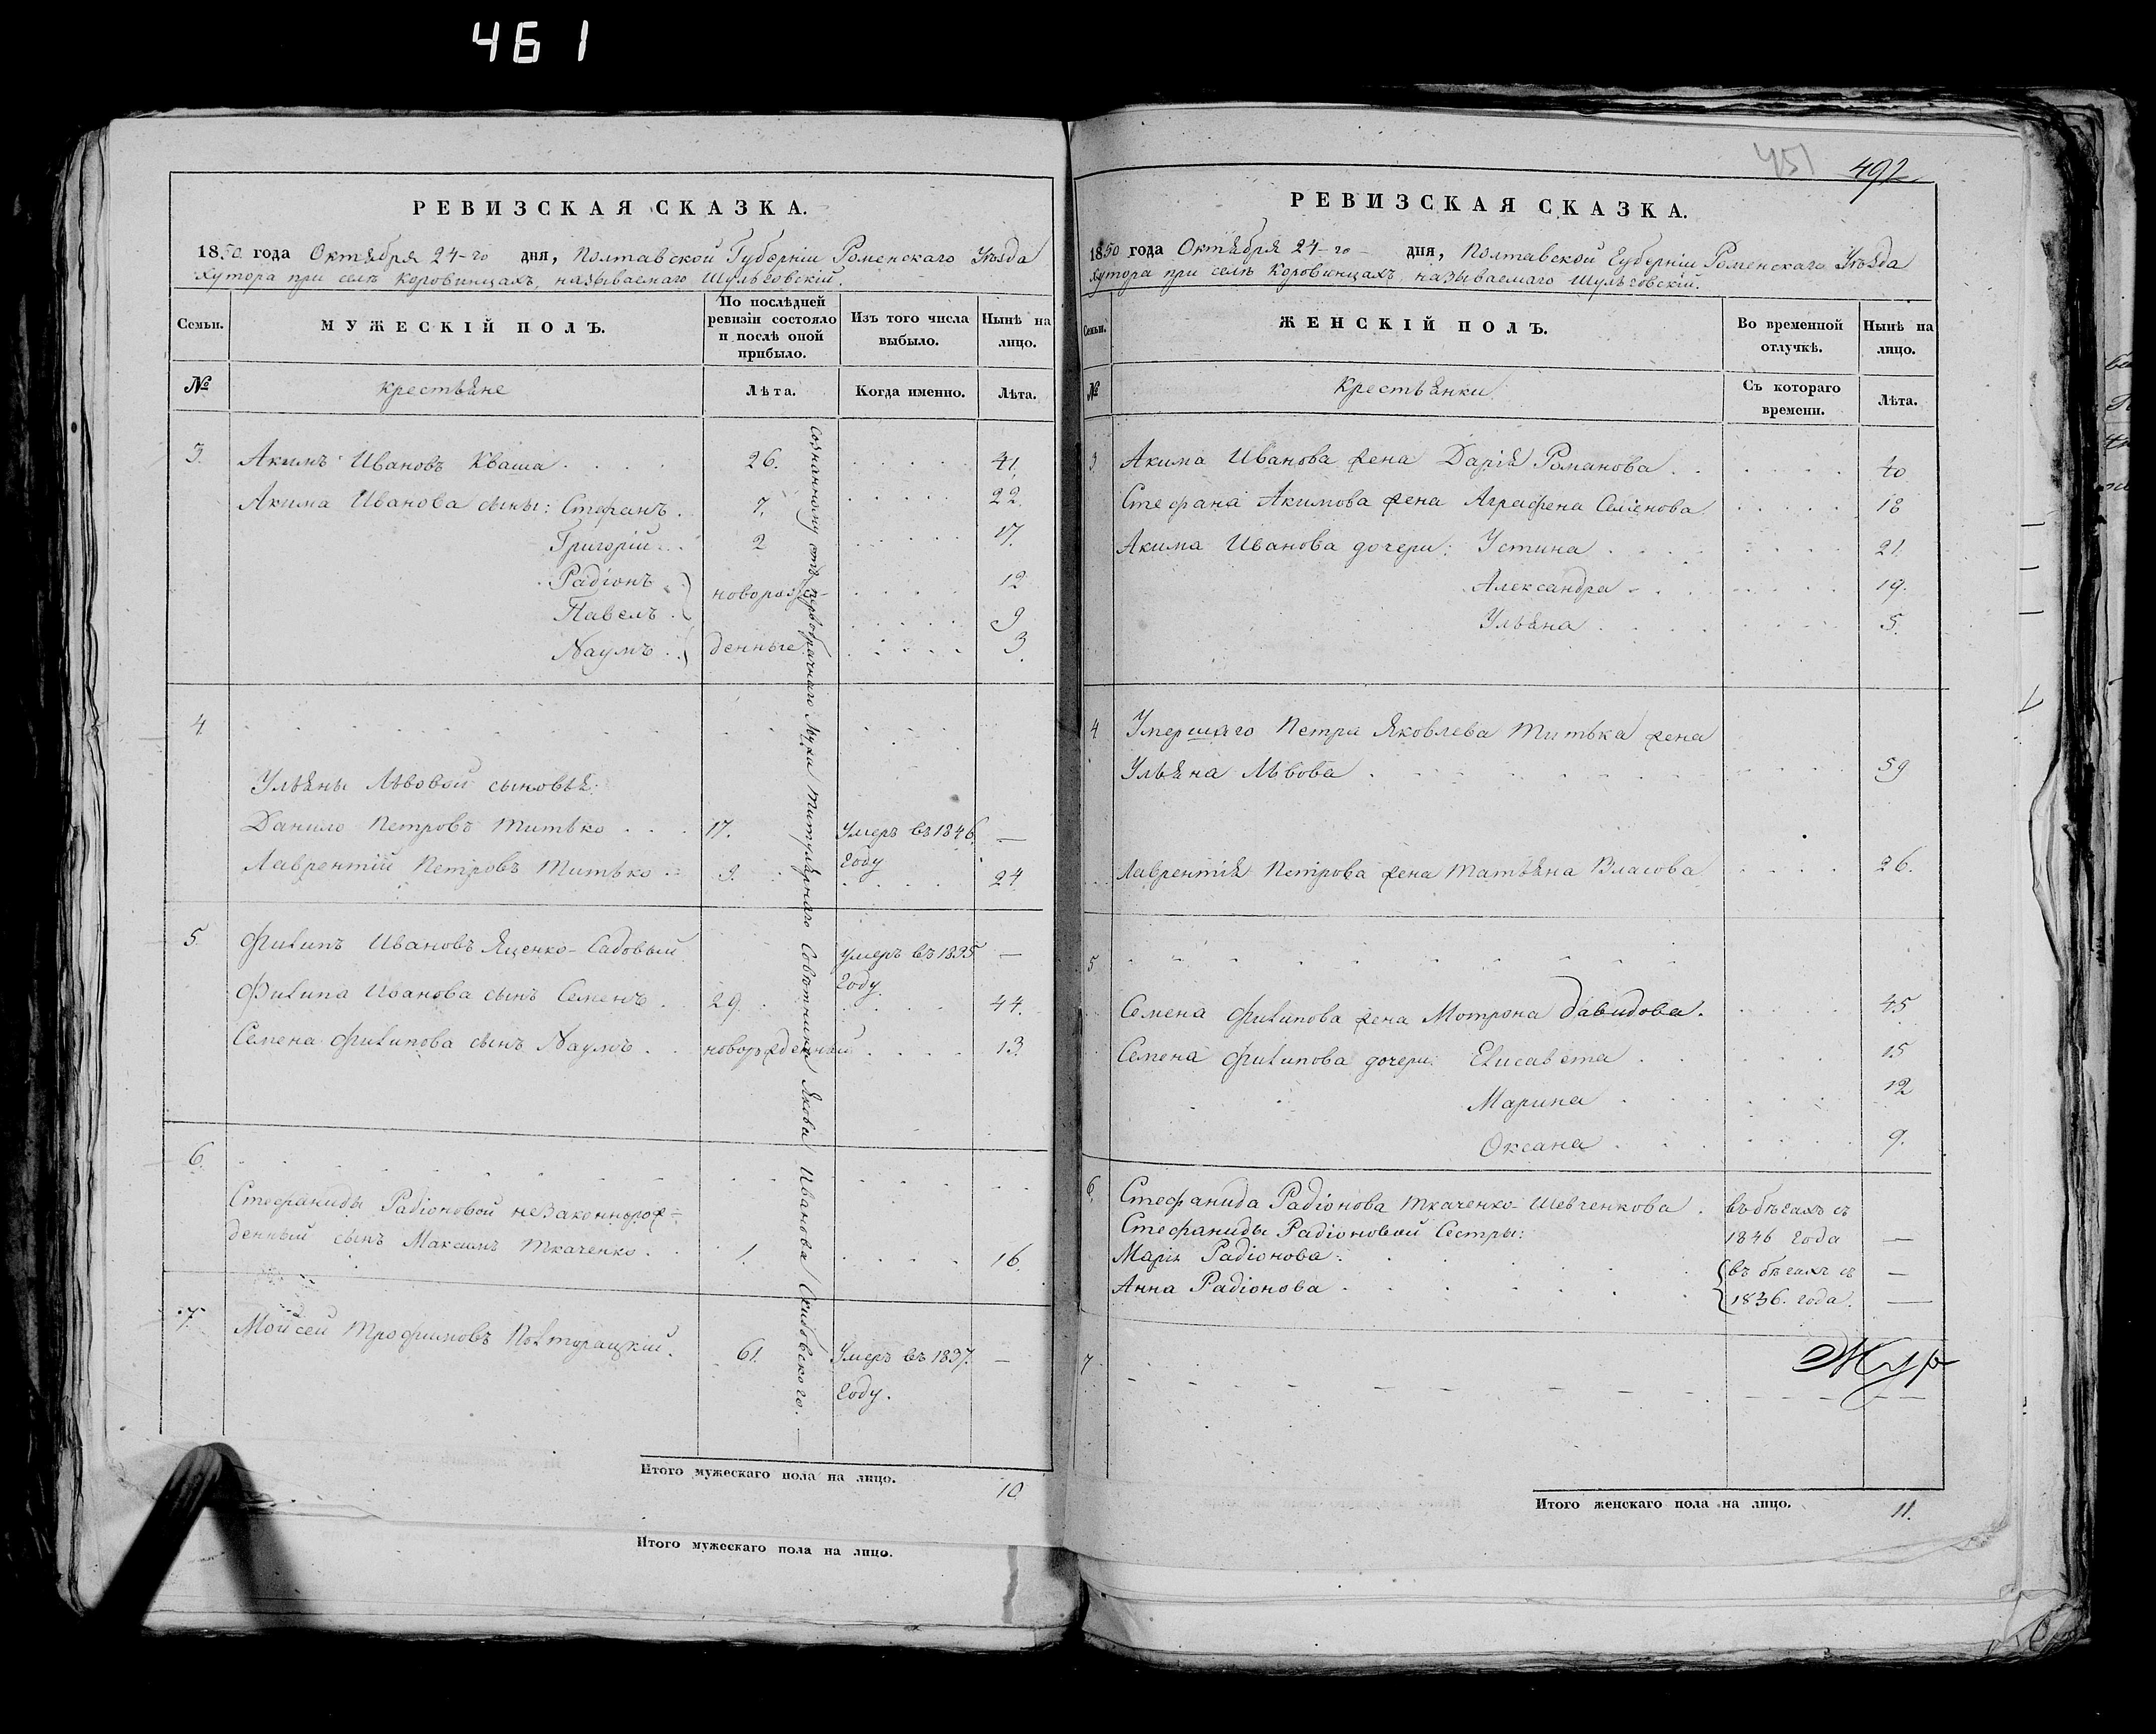 461
РЕВИЗСКАЯ СКАЗКА.
1850 года Октября 24-го дня, Полтавской Губерніи Роменскаго Уѣзда
Хутора при селѣ Коровинцахъ, называемаго Шульговскій.
Семьи.
МУЖЕСКІЙ ПОЛЪ.
По послѣдней ревизіи состояло и послѣ оной прибыло.
Изъ того числа выбыло.
Нынѣ на лицо.
№
Крестьяне
Лѣта.
Когда именно.
Лѣта.
3. Акимъ Ивановъ Кваша . . . . 26. . . . . 41.
Акима Иванова сыны: Стефанъ . 7. . . . . . 22.
Григорій . . . 2 . . . . . 17.
Радіонъ . . . . . 12
Павелъ . . . . . . 9
Наумъ . . . . . . 3.
новорожденные
4
Ульяны Львовой сыновья:
Данило Петровъ Титько . . . 17. Умеръ въ 1846. году —
Лаврентій Петровъ Титько . . 9. . . . . 24
5. Филипъ Ивановъ Яценко-Садовый умеръ въ 1835 году. —
Филипа Иванова сынъ Семенъ . 29. . . . . 44.
Семена Филипова сынъ Наумъ . . новорожденный . . . . 13.
6.
Стефаниды Радіоновой незаконнорож-
денный сынъ Максимъ Ткаченко . . . 1. . . . . 16.
7. Мойсей Трофимовъ Полторацкій. 61. Умеръ въ 1837. году. —
отъ первобрачнаго Мужа Титулярнаго Совѣтника Якова Иванова
Итого мужескаго пола на лицо. 10.
Итого мужескаго пола на лицо.
451
492
РЕВИЗСКАЯ СКАЗКА.
1850 года Октября 24-го дня, Полтавской Губерніи Роменскаго Уѣзда
Хутора при селѣ Коровинцахъ, называемаго Шульговскій.
Семьи.
ЖЕНСКІЙ ПОЛЪ.
Во временной отлучкѣ.
Нынѣ на лицо.
№
Крестьянки
Съ котораго времени.
Лѣта.
3. Акима Иванова жена Дарія Романова . . . . . . 40
Стефана Акимова жена Аграфена Семенова . . . . . 18
Акима Иванова дочери: Устина . . . . . . 21.
Александра . . . . . . 19.
Ульяна . . . . . . 5.
4 Умершаго Петра Яковлева Титька жена
Ульяна Львова . . . . . . 59
Лаврентія Петрова жена Татьяна Власова . . . . 26.
5
Семена Филипова жена Мотрона Давидова. . . . . . 45
Семена Филипова дочери: Елисавета . . . . . . 15
Марина . . . . . . 12
Оксана . . . . . . 9.
6. Стефанида Радіонова Ткаченко-Шевченкова . въ бѣгахъ съ
Стефаниды Радіоновой Сестры: 1846 года —
Марія Радіонова . . . . . въ бѣгахъ съ —
Анна Радіонова . . . . . . 1836. года. —
7
Итого женскаго пола на лицо. 11.